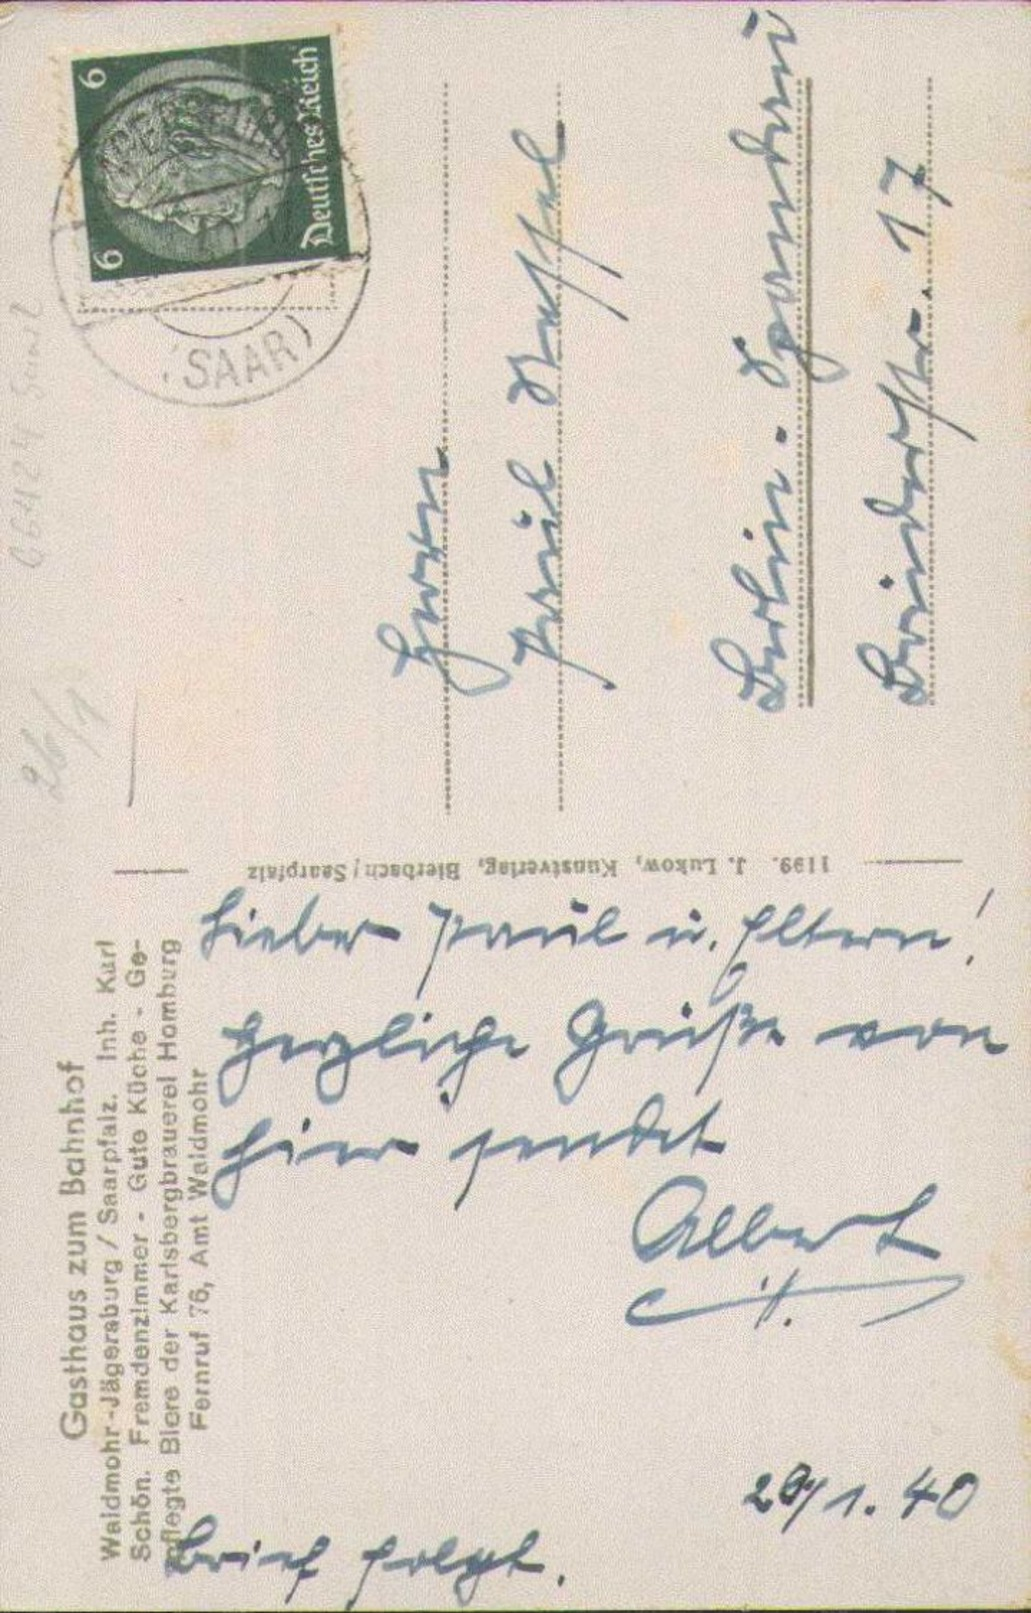 Gasthaus zum Bahnhof
Waldmohr-Jägersburg / Saarpfalz. Inh. Karl
Schön. Fremdenzimmer - Gute Küche - Ge-
pflegte Biere der Karlsbergbrauerei Homburg
Fernruf 76, Amt Waldmohr
Lieber Paul u. Eltern!
Herzliche Grüße von
hier sendet
Albert
Brief folgt.
1199. J. Lukow, Kunstverlag, Bierbach/Saarpfalz
26/1
6 6
Deutsches Reich
(SAAR)
Herrn
Paul
Berlin-Spandau
17
1. 40